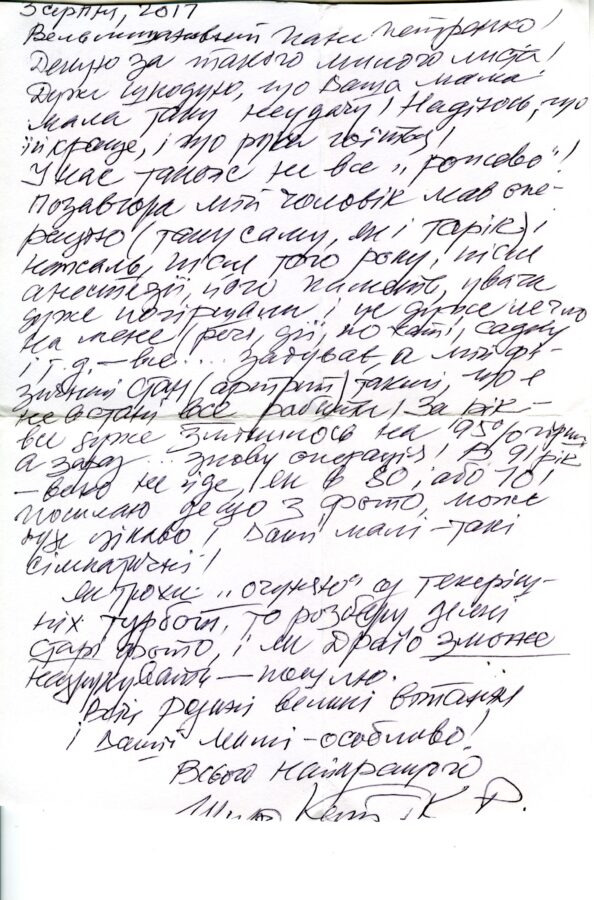 3 серпня, 2017
Вельмишановний Пане Петренко!
Дякую за такого милого листа!
Дуже шкодую, що Ваша мама
мала таку невдачу! Надіюсь, що
їй краще, і що рука гоїться!
У нас також не все „рожево"!
Позавчора мій чоловік мав опе-
рацію (таку саму, як і торік) і
нажаль, після того року, і після
анестезії, його память, увага
дуже погіршали і це дуже лягло
на мене (речі, дії, по хаті, садку
і т.д. – все ... а мій фі-
зичний стан (артрит) такий, що я
не в стані все робити! За рік –
все дуже змінилось на 95%
а зараз ... знову операція! В 91 рік
– воно не йде, як в 80, або 70!
Посилаю дещо з фото, може
буде цікаво! Ваші малі – такі
симпатичні!
Як трохи „очуняю" від теперіш-
ніх турбот, то розберу деякі
старі фото, і як зможе
надрукувати – пошлю.
Всій родині великі вітання
і Вашій мамі – особливо!
Всього найкращого